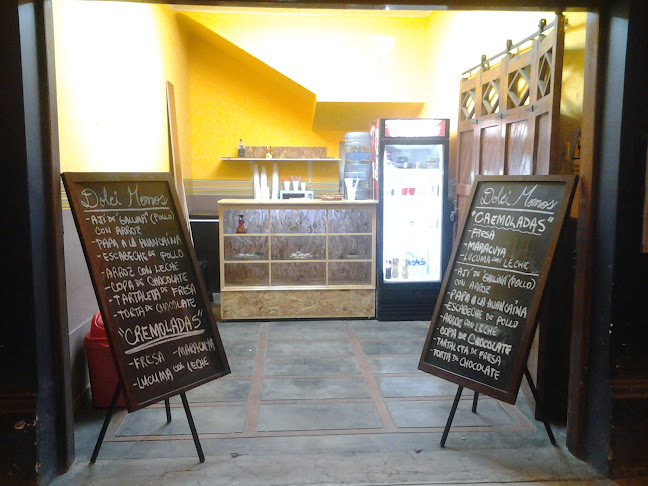 Dolci Momos
- AJI DE GALLINA (POLLO)
CON ARROZ
- PAPA A LA HUANCAÍNA
- ESCABECHE DE POLLO
- ARROZ CON LECHE
- COPA DE CHOCOLATE
- TARTALETA DE FRESA
- TORTA DE CHOCOLATE
"CREMOLADAS"
- FRESA - MARACUYA
- LUCUMA CON LECHE
Dolci Momos
"CREMOLADAS"
- FRESA
- MARACUYA
- LUCUMA CON LECHE
- AJI DE GALLINA (POLLO)
CON ARROZ
- PAPA A LA HUANCAÍNA
- ESCABECHE DE POLLO
- ARROZ CON LECHE
- COPA DE CHOCOLATE
- TARTALETA DE FRESA
- TORTA DE CHOCOLATE